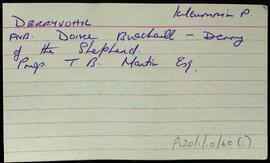 Kilcummin P.
DERRYVOHIL
AUB. Doire Buachaill - Derry
of the Shepherd.
Prop T B. Martin Esq.
P120/1/10/60 (1)